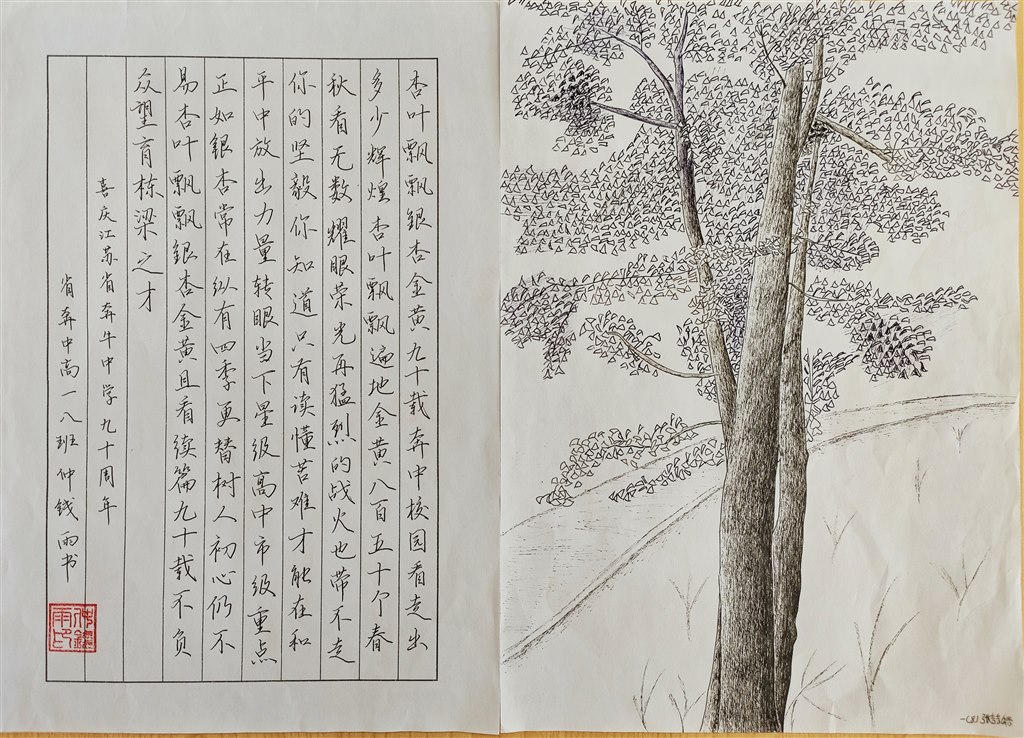 杏叶飘飘银杏金黄九十载奔中校园看走出
多少辉煌杏叶飘飘遍地金黄八百五十个春
秋看无数耀眼荣光再猛烈的战火也带不走
你的坚毅你知道只有读懂苦难才能在和
平中放出力量转眼当下星级高中市级重点
正如银杏常在纵有四季更替树人初心仍不
易杏叶飘飘银杏金黄且看续篇九十载不负
众望育栋梁之才
喜庆江苏省奔牛中学九十周年
省奔中高一八班仲钱雨书
仲钱雨印